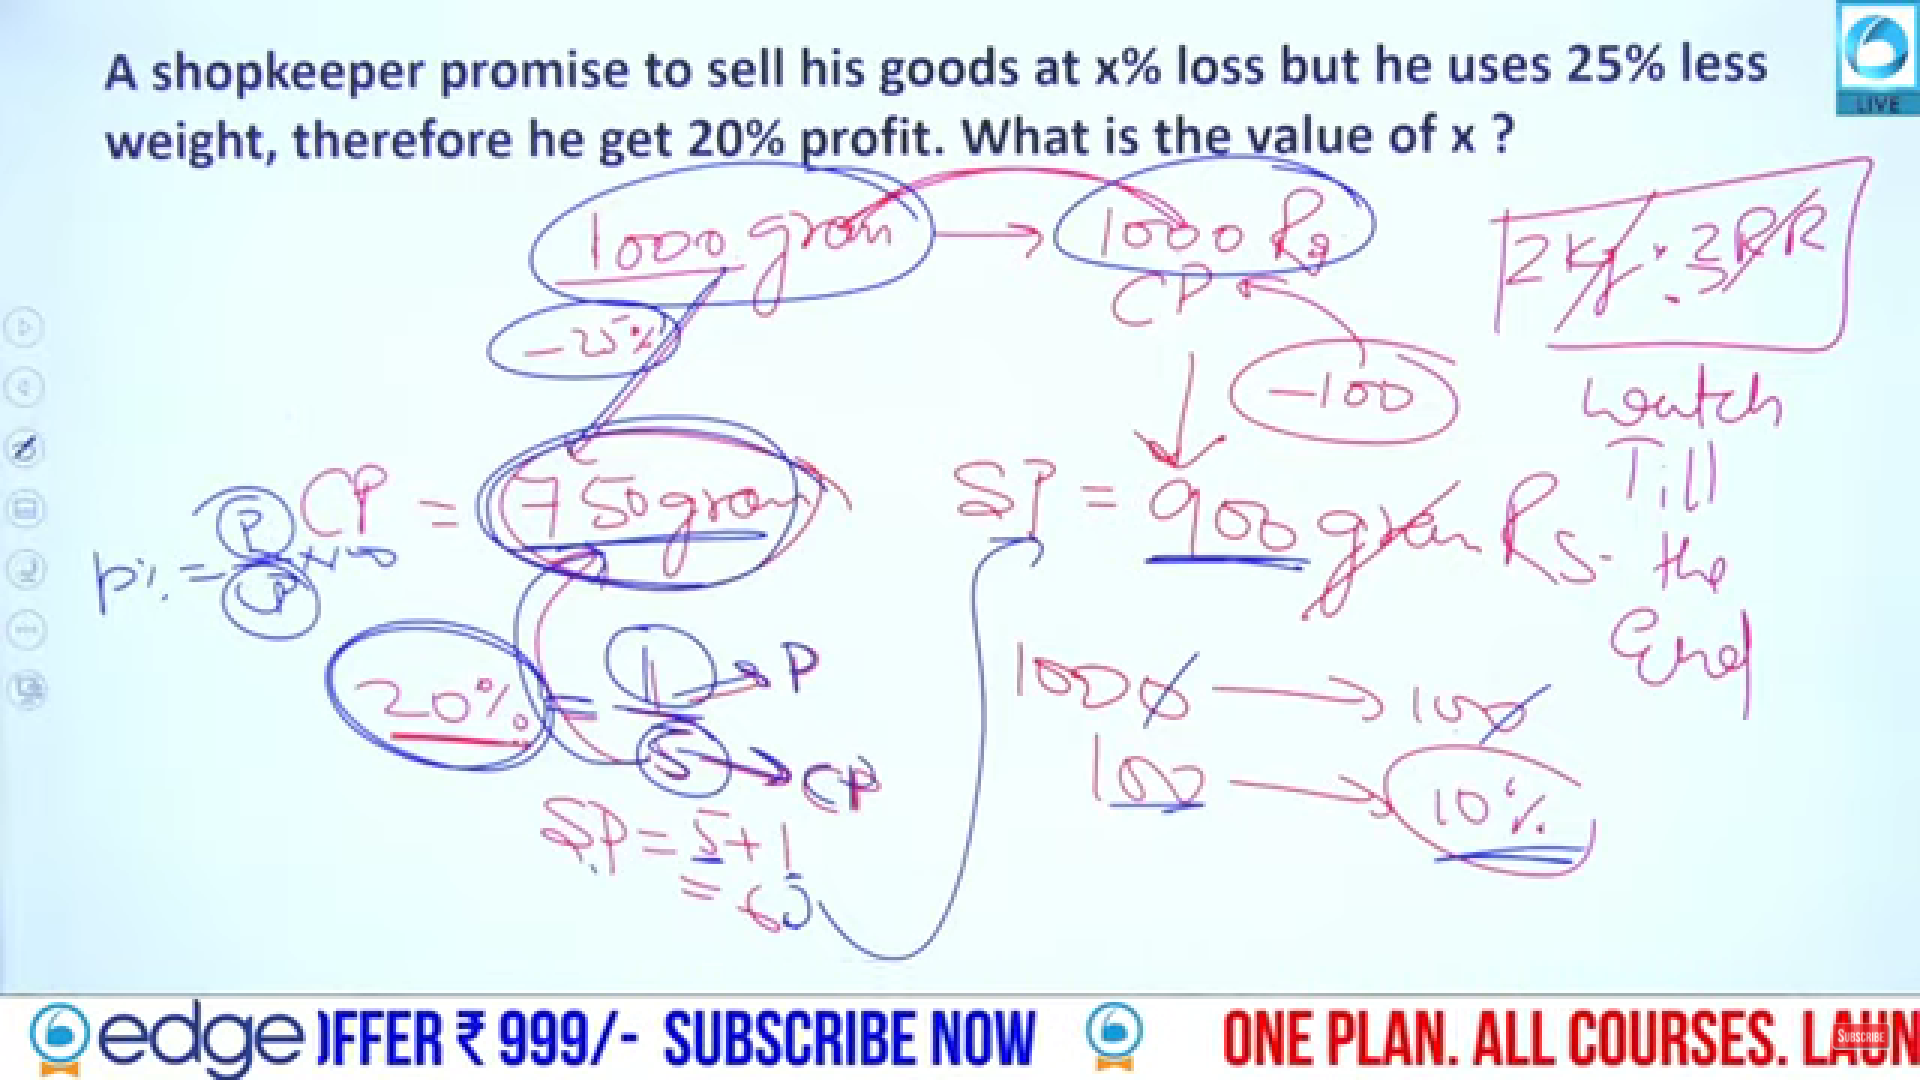 A shopkeeper promise to sell his goods at x% loss but he uses 25% less
weight, therefore he get 20% profit. What is the value of x ?
LIVE
1000 gram → 1000 Rs
CP
2 Kg
-25%
-100
Watch
Till
the
End
CP = 750 gram
SP = 900 gram Rs.
P% = P/CP × 100
20% = 1/5
→ P
→ CP
SP = 5+1
= 6
1000 → 100
100 → 10%
edge OFFER ₹ 999/- SUBSCRIBE NOW ONE PLAN. ALL COURSES. LAUN
SUBSCRIBE